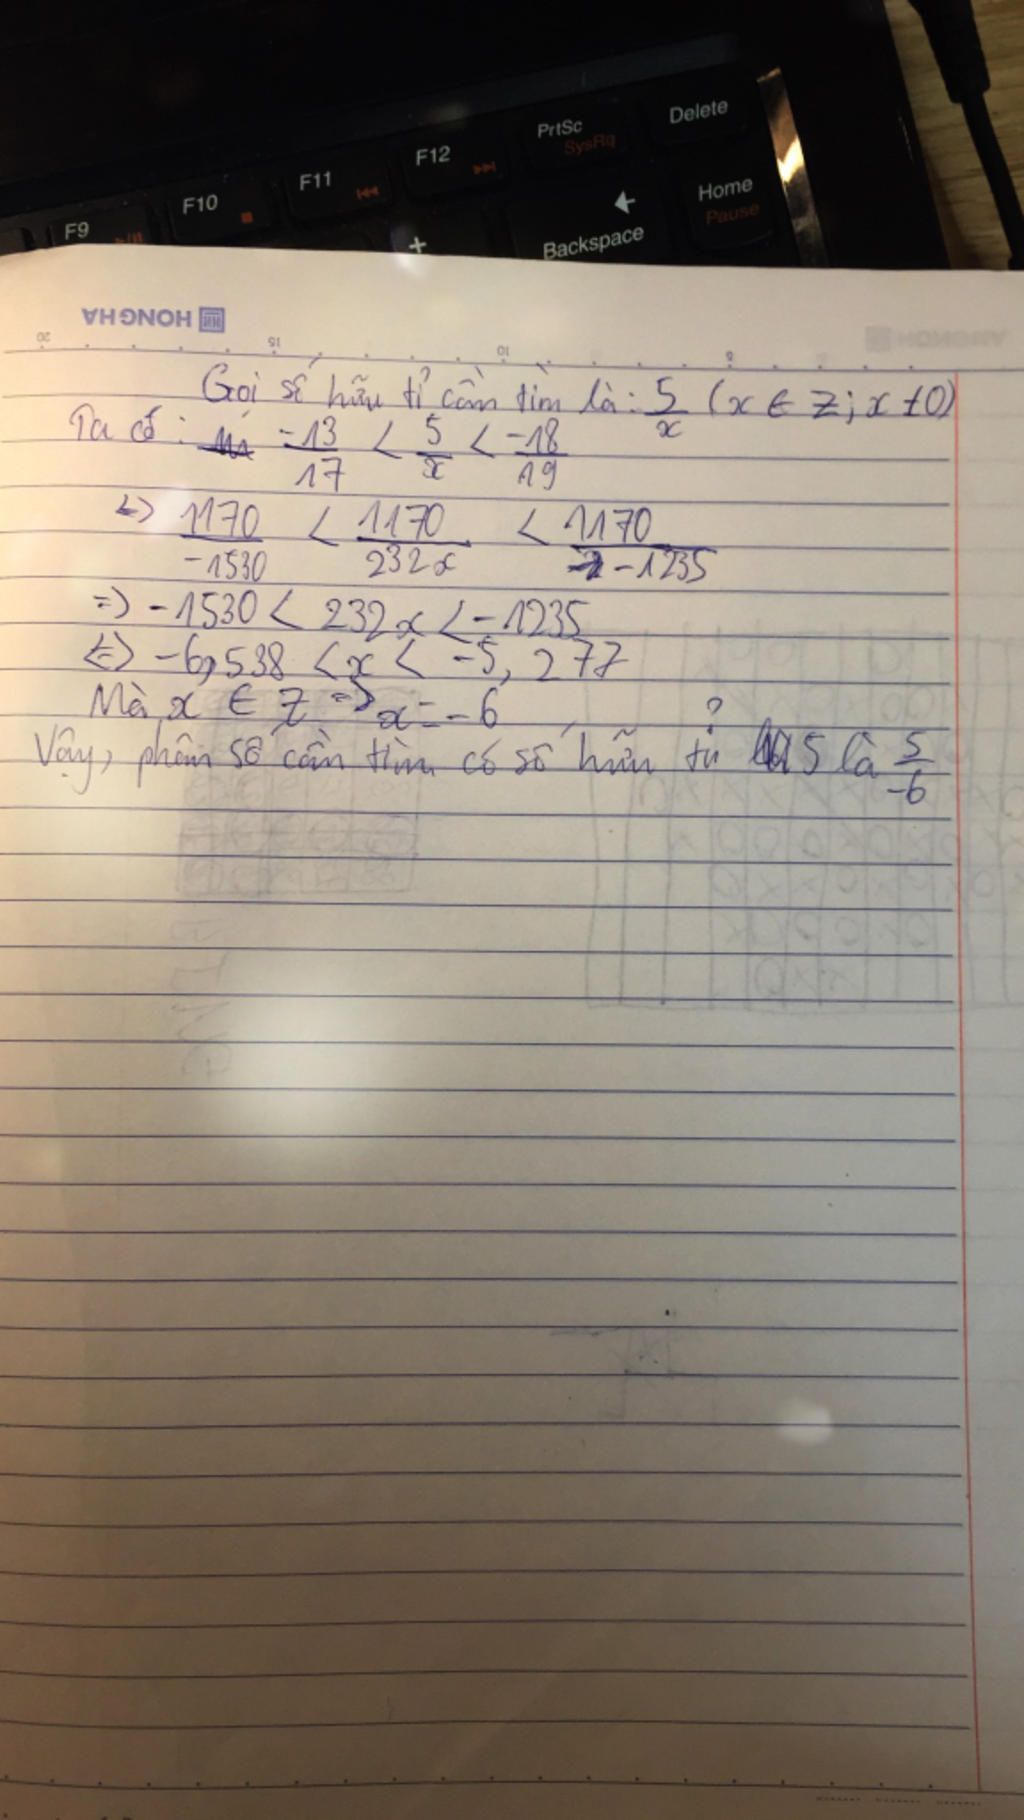 F9
F10
F11
F12
PrtSc
SysRq
Delete
Home
Pause
+
Backspace
HONG HA
20 15 10
Gọi số hữu tỉ cần tìm là: 5/x (x ∈ Z; x ≠ 0)
Ta có: -13/17 < 5/x < -18/19
<=> 1170/-1530 < 1170/232x < 1170/-1235
=> -1530 < 232x < -1235
<=> -6,538 < x < -5,277
Mà x ∈ Z => x = -6
Vậy, phân số cần tìm có số hữu tỉ 5 là 5/-6